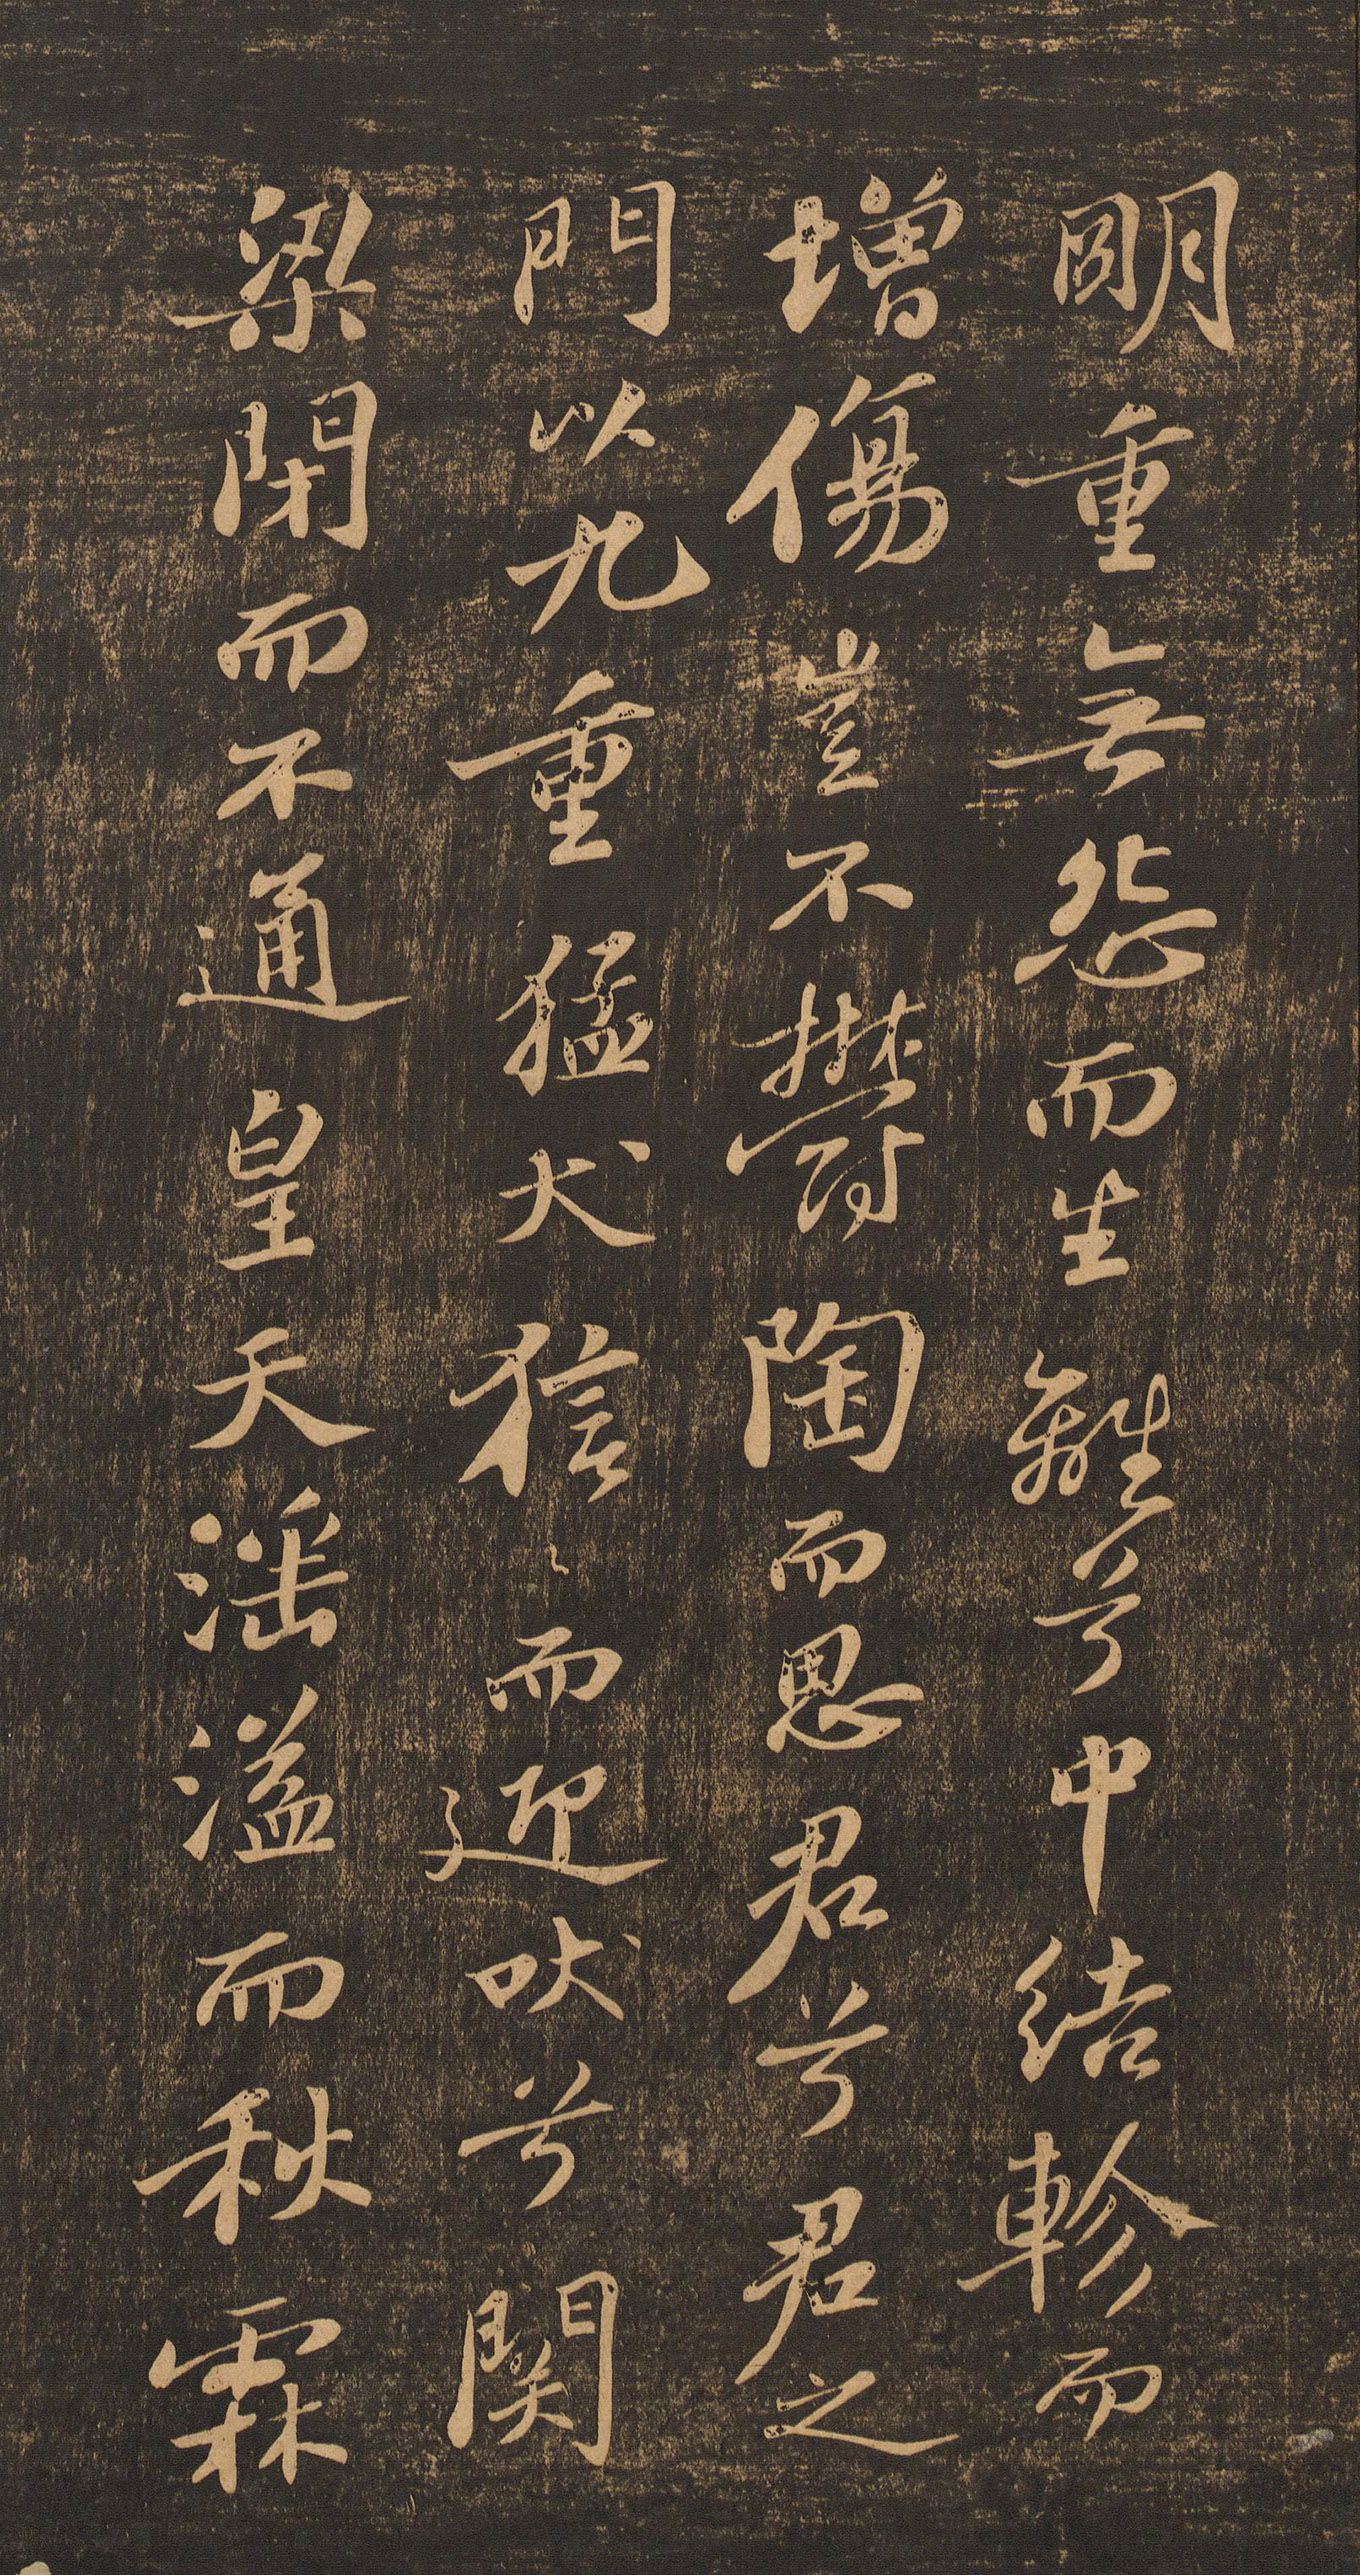 明重無怨而生離兮中結軫而
增傷豈不鬱陶而思君兮君之
門以九重猛犬狺〻而迎吠兮関
梁閉而不通皇天淫溢而秋霖